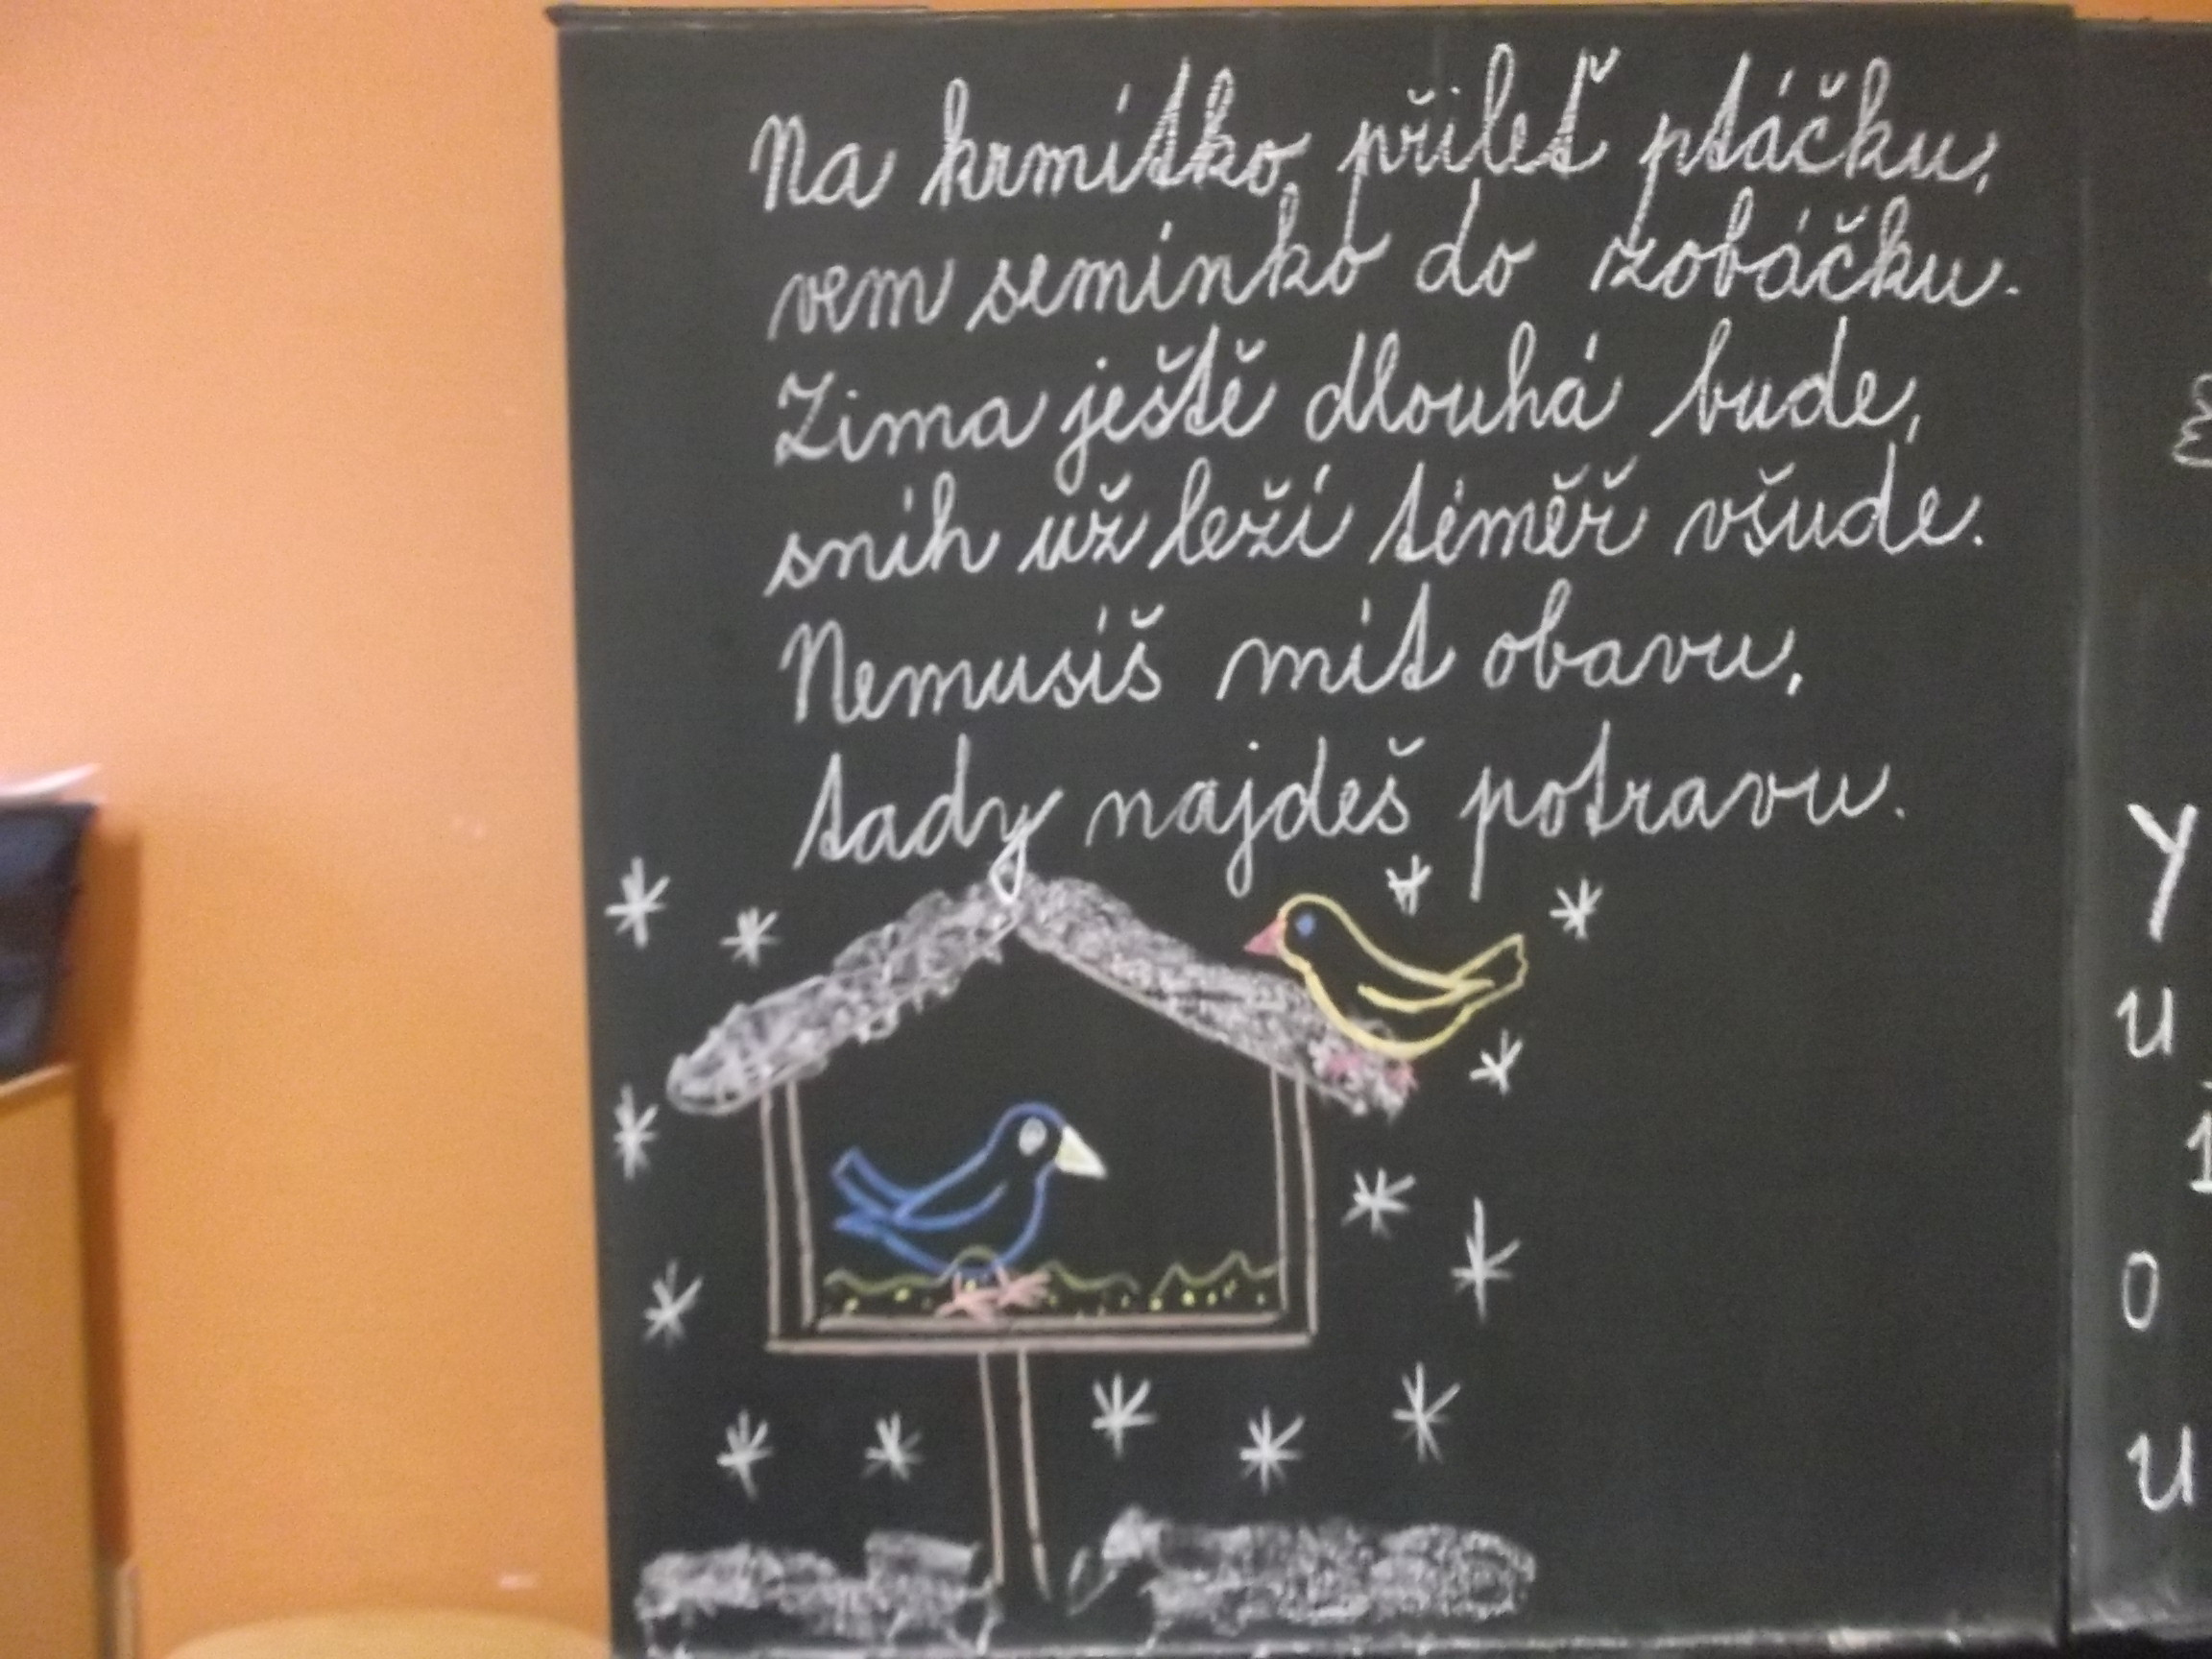 Na krmítko přileť ptáčku,
vem semínko do zobáčku.
Zima ještě dlouhá bude,
sníh už leží téměř všude.
Nemusíš mít obavu,
tady najdeš potravu.
y
u
1
o
u